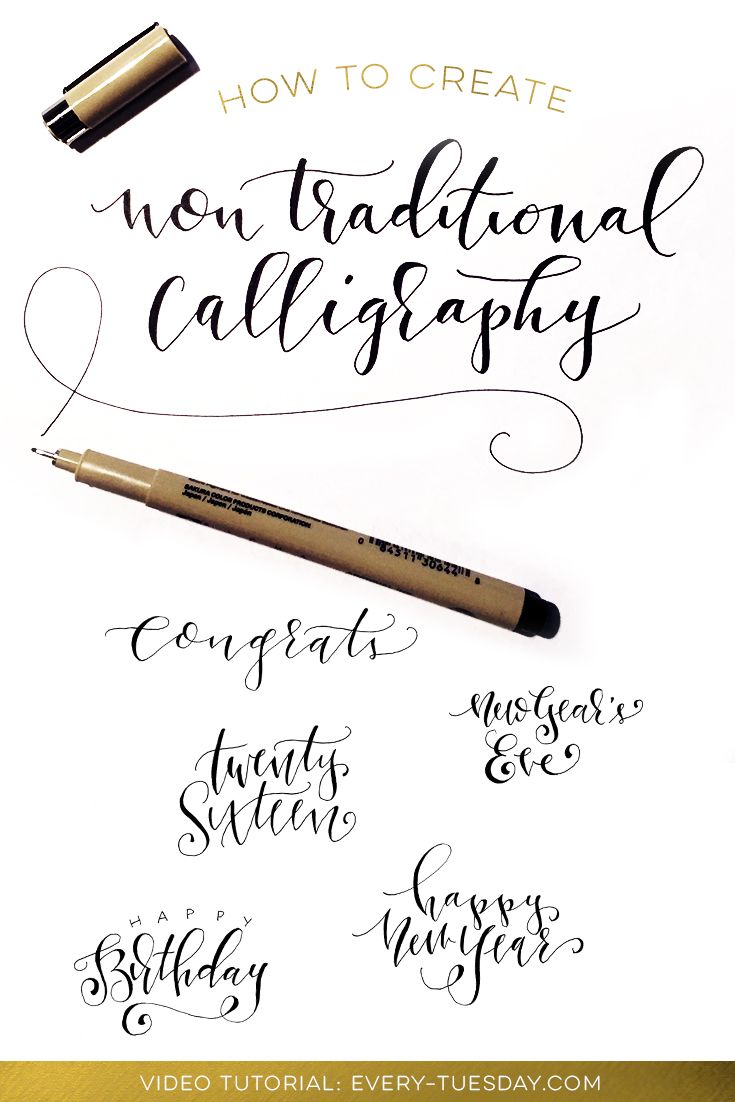 HOW TO CREATE
non traditional
Calligraphy
SAKURA COLOR PRODUCTS CORPORATION
Japan / Japon / Japón
0 84511 30644 8
Congrats
New Year's
Eve
twenty
Sixteen
happy
New Year
HAPPY
Birthday
VIDEO TUTORIAL: EVERY-TUESDAY.COM